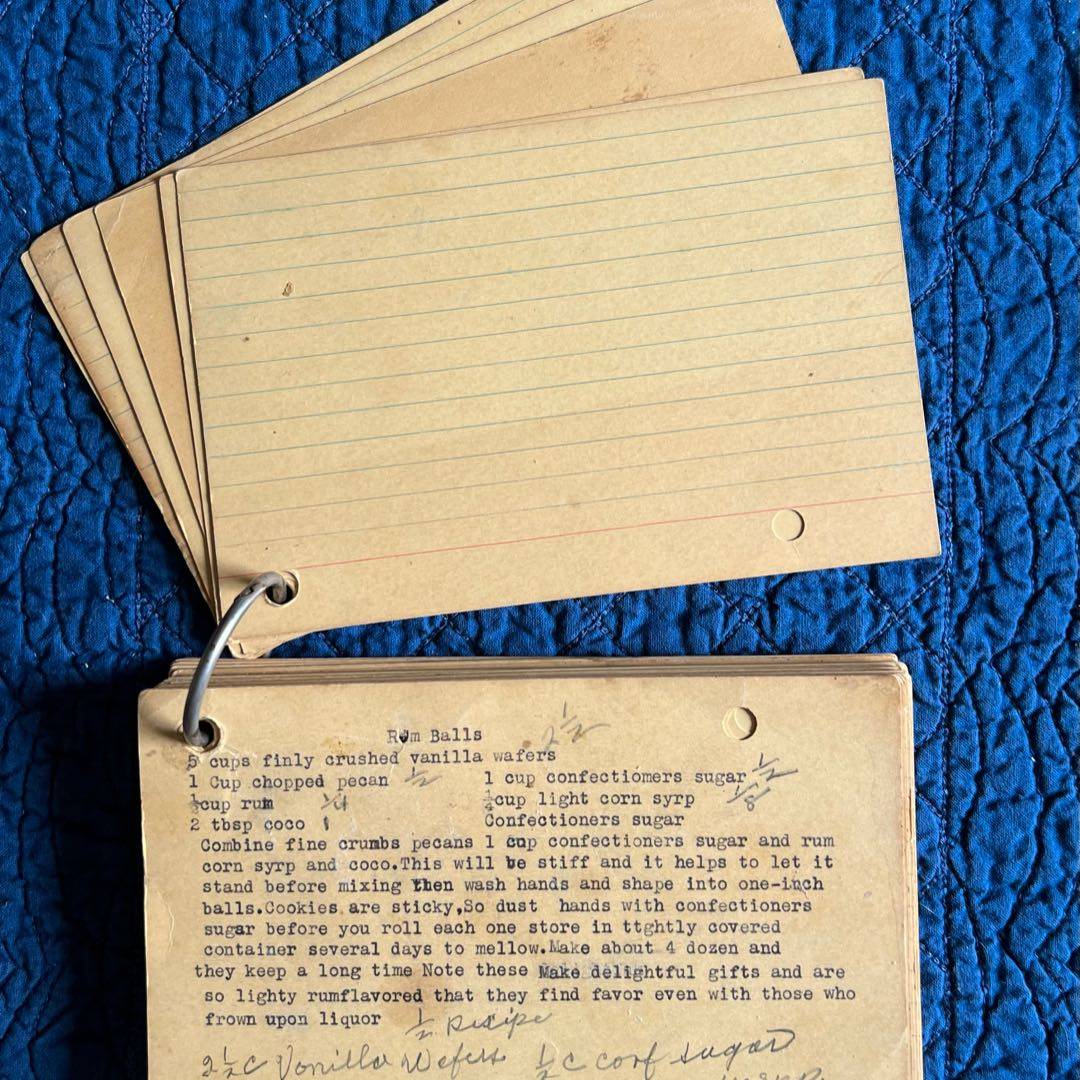 Rum Balls 2½
5 cups finly crushed vanilla wafers
1 Cup chopped pecan ½ 1 cup confectiomers sugar ½
½cup rum ¼ ¼cup light corn syrp ⅛
2 tbsp coco 1 Confectioners sugar
Combine fine crumbs pecans 1 cup confectioners sugar and rum
corn syrp and coco.This will be stiff and it helps to let it
stand before mixing then wash hands and shape into one-inch
balls.Cookies are sticky,So dust hands with confectioners
sugar before you roll each one store in ttghtly covered
container several days to mellow.Make about 4 dozen and
they keep a long time Note these Make delightful gifts and are
so lighty rumflavored that they find favor even with those who
frown upon liquor ½ Recipe
2½ C Vanilla Wafers ½ C conf sugar